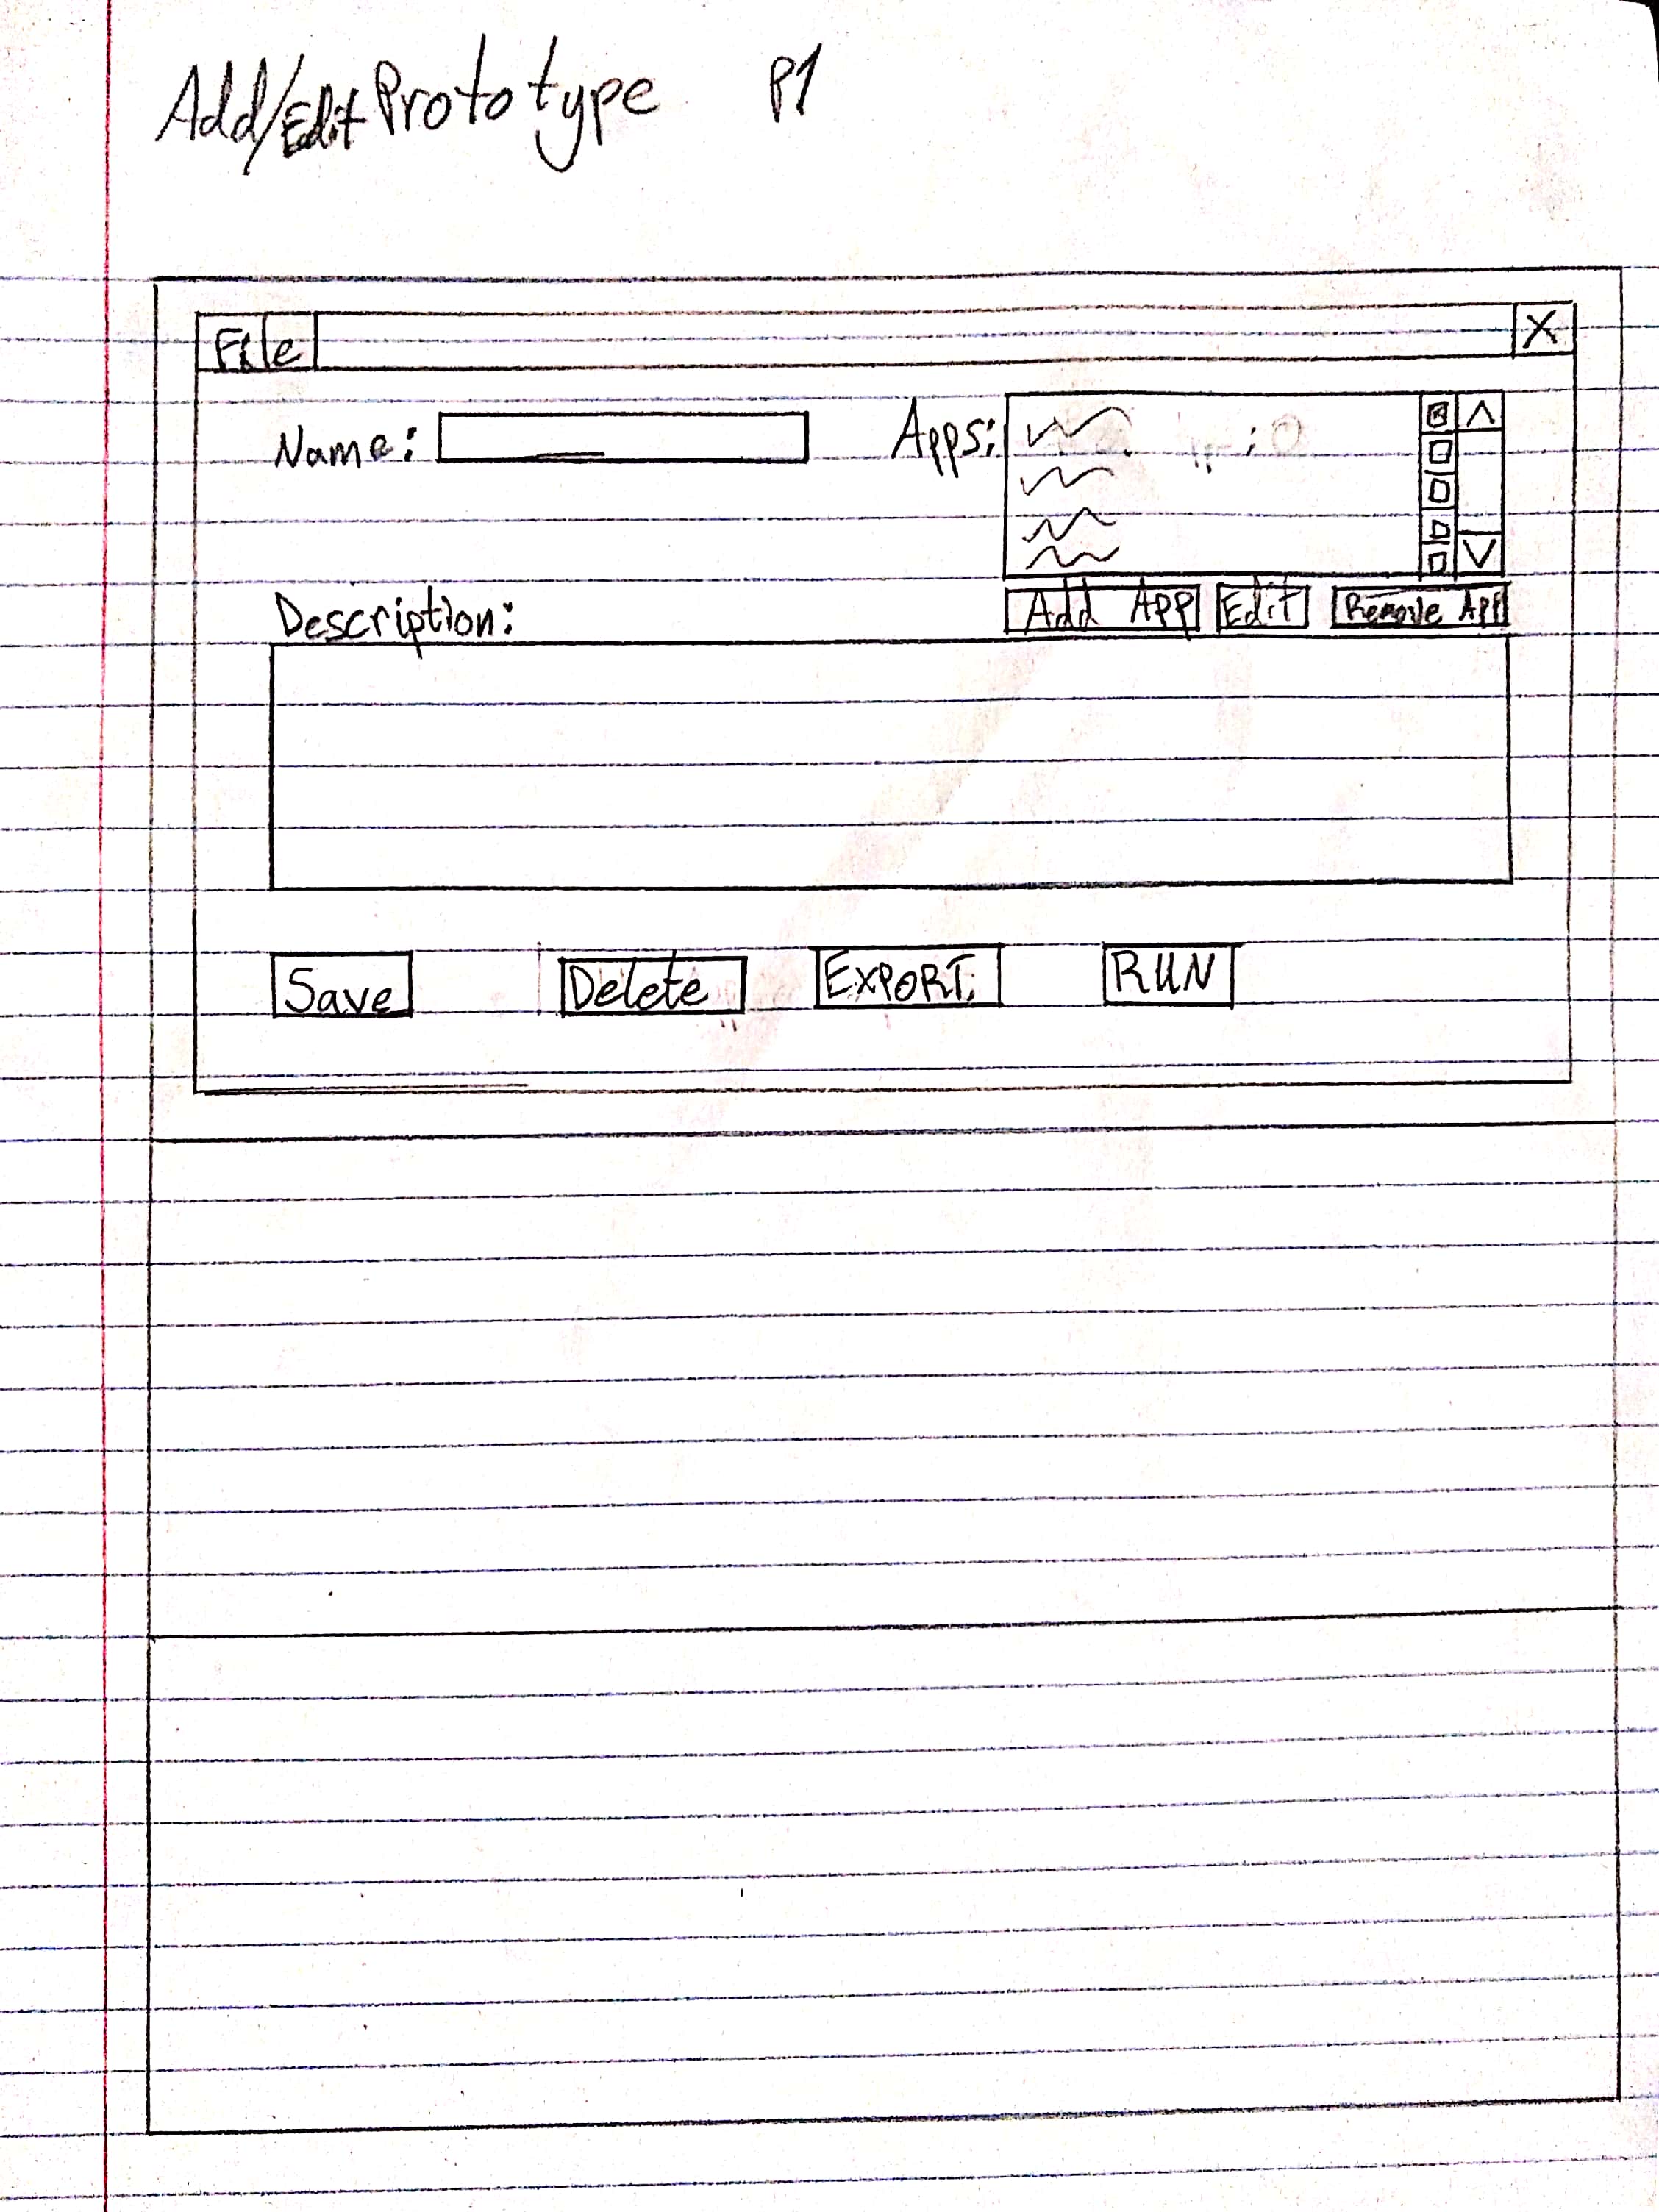 Add/Edit Prototype P1
File X
Name: Apps:
Add App Edit Remove App
Description:
Save Delete EXPORT RUN